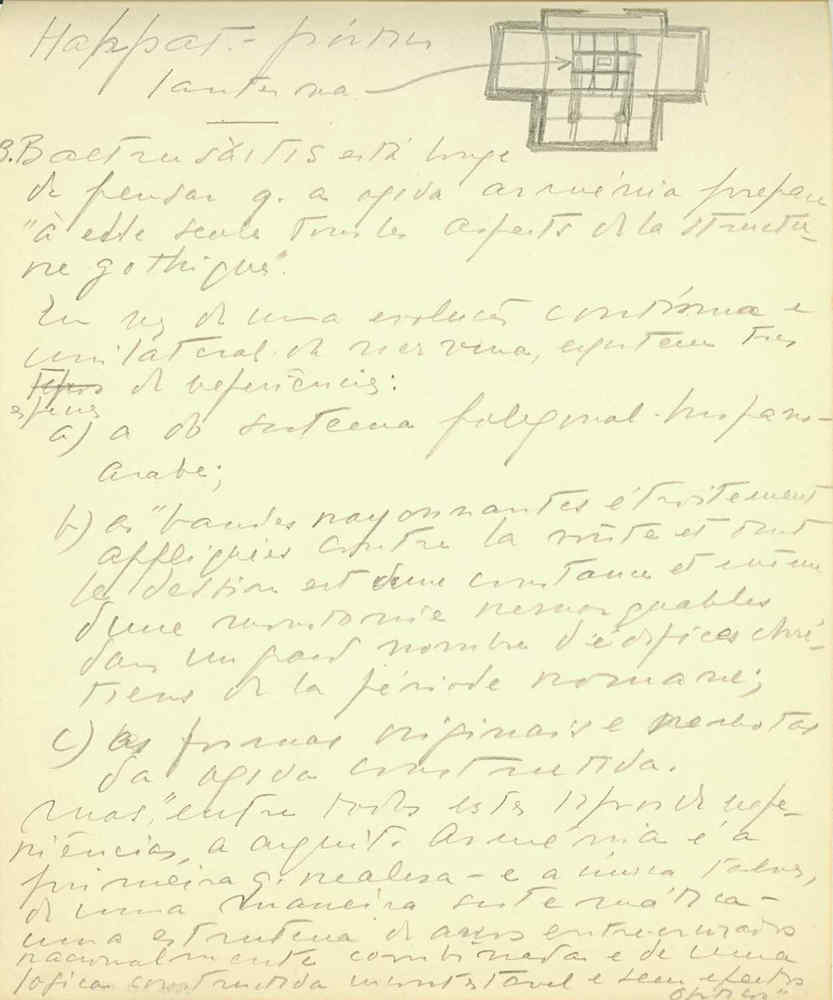 Happat. - pórtico
lanterna
B. Baltrusaïtis está longe
de pensar q. a ogiva arménia prepare
"à elle seule tous les aspects de la structu-
re gothique".
Em vez de uma evolução contínua e
unilateral da nervura, existem três
tipos de referências:
espécies
a) a do sistema poligonal hispano-
arabe;
b) as "bandes rayonnantes étroitement
appliquées contre la voûte et dont
le dessin est d'une constance et même
d'une monotonie remarquables
dans un grand nombre d'édifices chré-
tiens de la période romane;
c) as formas originais e remotas
da ogiva construtiva.
mas, "entre todos estes tipos de expe-
riências, a arquit. Arménia é a
primeira q. realisa - e a única talvez,
de uma maneira sistemática -
uma estrutura de arcos entrecruzados
racionalmente combinada e de uma
logica construtiva incontestavel e sem efeitos
opticos"